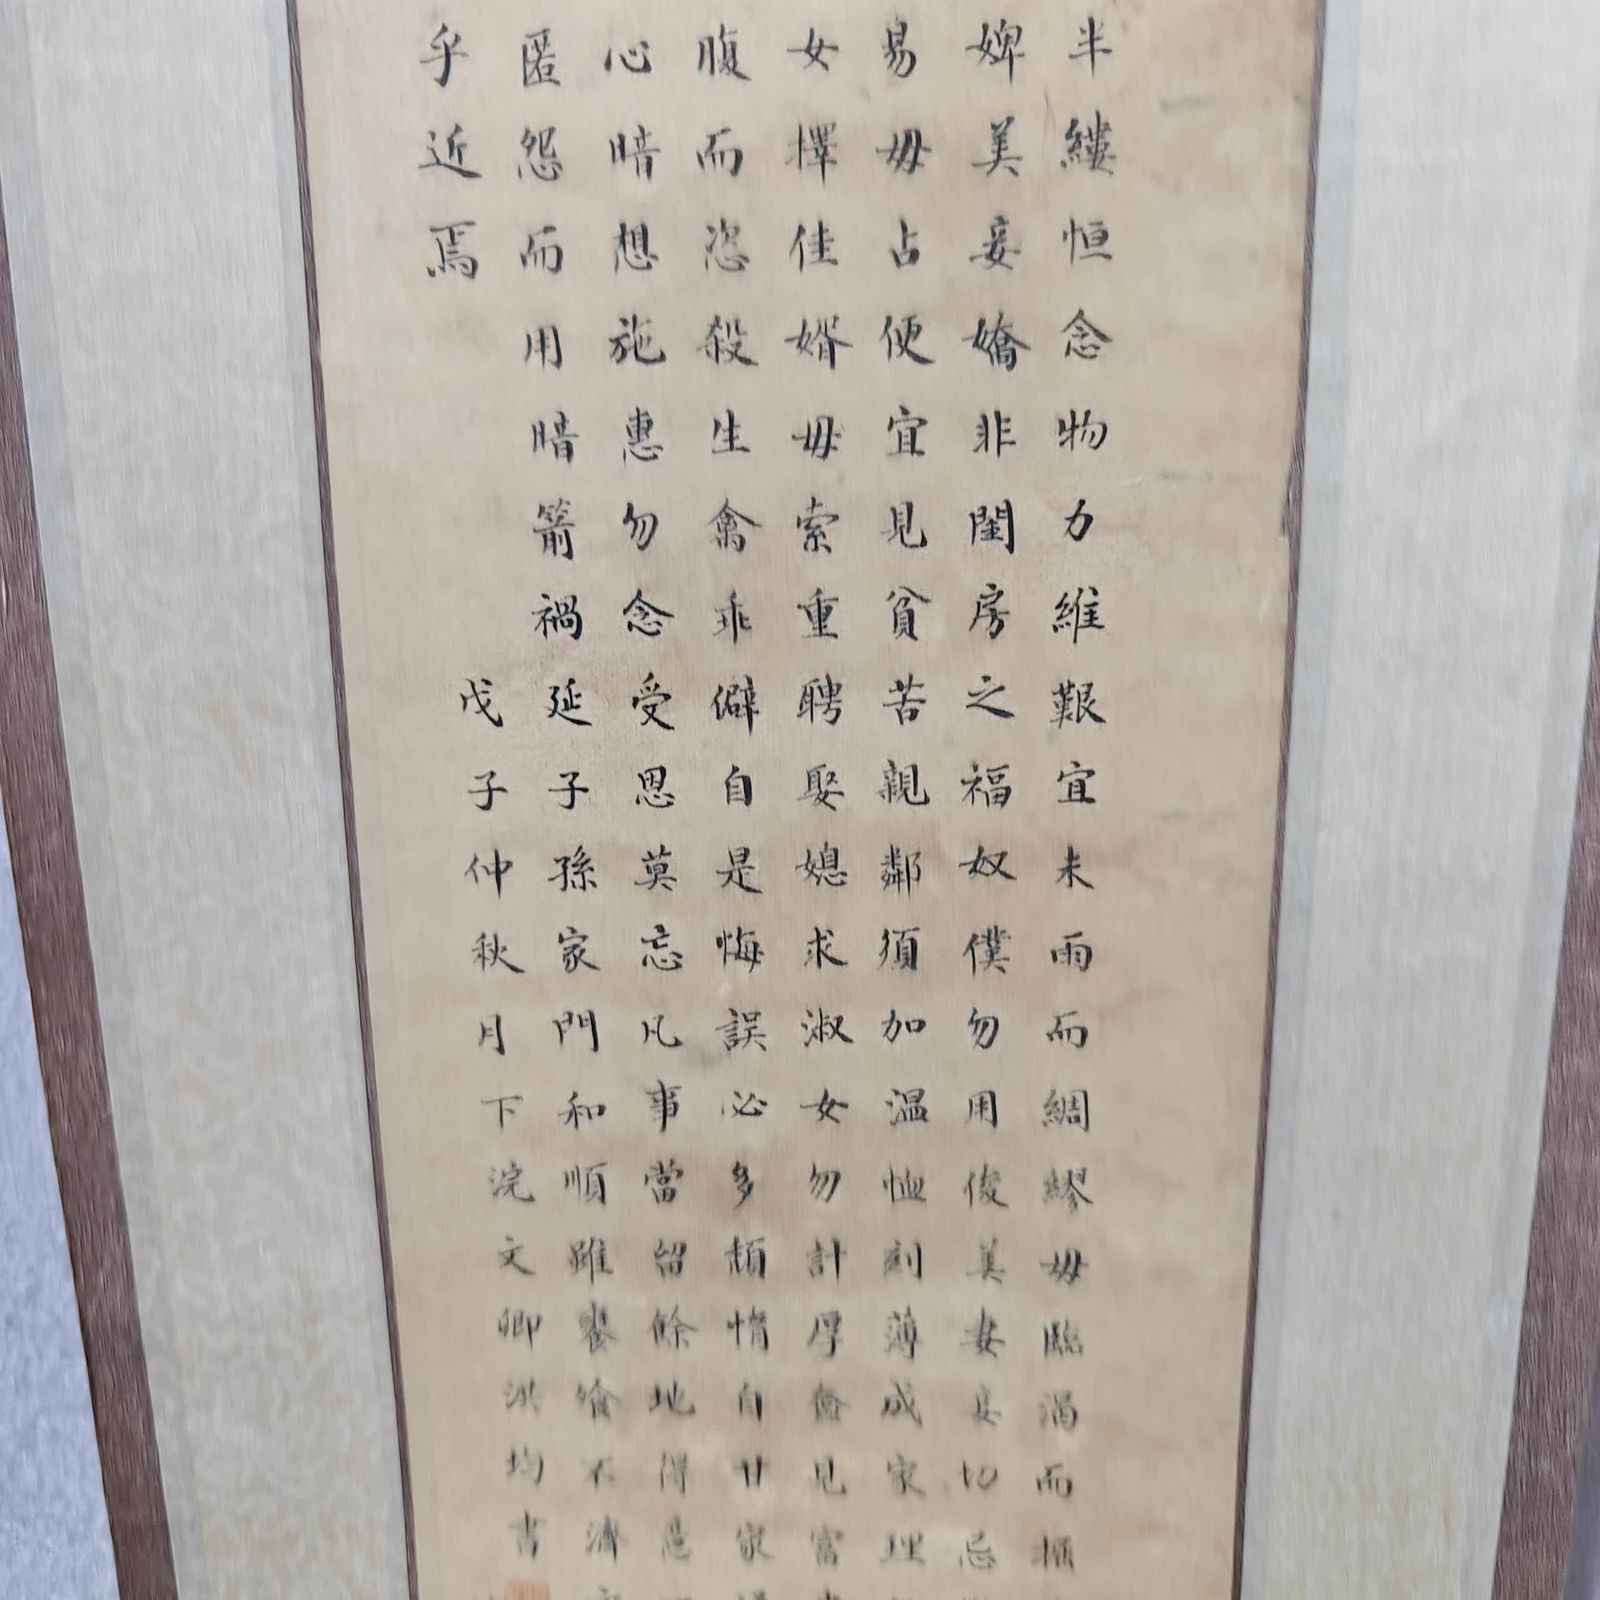 半縷恒念物力維艱宜未雨而綢繆毋臨渴而掘
婢美妾嬌非閨房之福奴僕勿用俊美妻妾切忌
易毋占便宜見貧苦親鄰須加溫恤刻薄成家理
女擇佳婿毋索重聘娶媳求淑女勿計厚奩見富
腹而恣殺生禽乖僻自是悔誤必多頹惰自甘家
心暗想施惠勿念受恩莫忘凡事當留餘地得意
匿怨而用暗箭禍延子孫家門和順雖饔飧不濟
乎近焉
戊子仲秋月下浣文卿洪均書